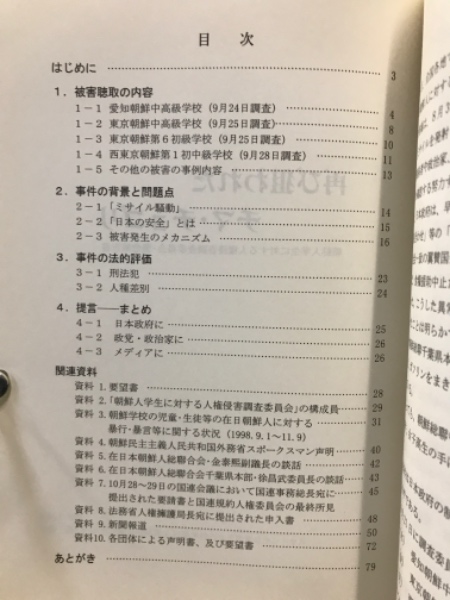 目 次
はじめに 3
1．被害聴取の内容
1－1 愛知朝鮮中高級学校（9月24日調査） 4
1－2 東京朝鮮中高級学校（9月25日調査） 8
1－3 東京朝鮮第6初級学校（9月25日調査） 10
1－4 西東京朝鮮第1初中級学校（9月28日調査） 11
1－5 その他の被害の事例内容 13
2．事件の背景と問題点
2－1「ミサイル騒動」 14
2－2「日本の安全」とは 15
2－3 被害発生のメカニズム 16
3．事件の法的評価
3－1 刑法犯 23
3－2 人種差別 24
4．提言――まとめ
4－1 日本政府に 25
4－2 政党・政治家に 26
4－3 メディアに 26
関連資料
資料 1.要望書 28
資料 2.「朝鮮人学生に対する人権侵害調査委員会」の構成員 29
資料 3.朝鮮学校の児童・生徒等の在日朝鮮人に対する 31
暴行・暴言等に関する状況（1998.9.1～11.9）
資料 4.朝鮮民主主義人民共和国外務省スポークスマン声明 40
資料 5.在日本朝鮮人総聯合会・金泰煕副議長の談話 42
資料 6.在日本朝鮮人総聯合会千葉県本部・徐昌武委員長の談話 43
資料 7.10月28～29日の国連会議において国連事務総長宛に 45
提出された要請書と国連規約人権委員会の最終所見
資料 8.法務省人権擁護局長宛に提出された申入書 48
資料 9.新聞報道 50
資料10.各団体による声明書、及び要望書 72
あとがき 79